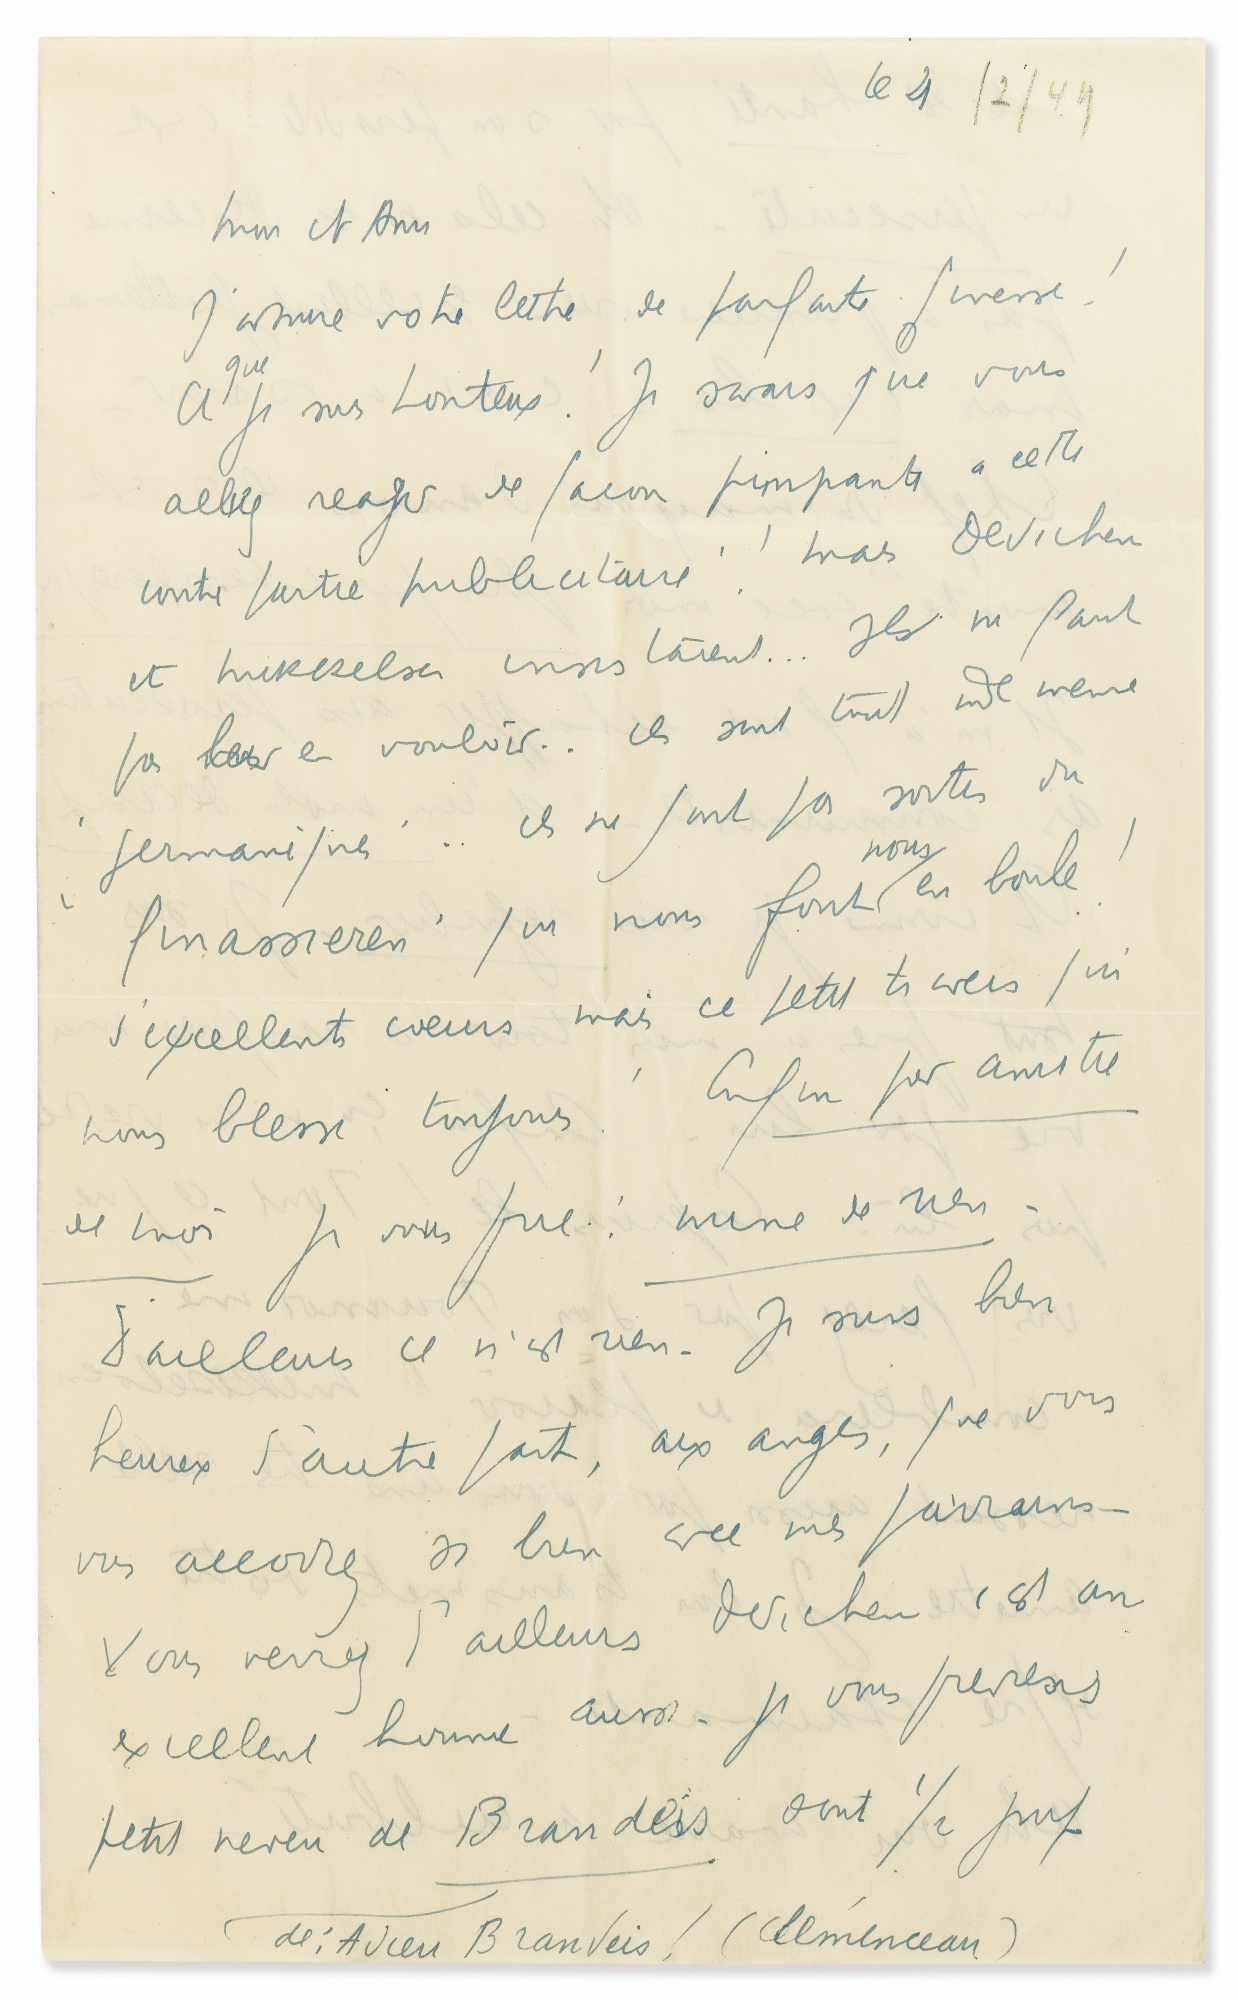 le 21 /2/49
Mon ct Ami
J'admire votre lettre de parfaite finesse !
Ce que je suis honteux ! Je savais que vous
alliez reager de facon pimpante a cette
contre partie publicitaire ! ! mais Devichen
et mikkelsen insistaient... Il ne faut
pas leur en vouloir.. ils sont tout de meme
"germaniques".. ils ne sont pas sortis du
"finassieren" qui nous font nous en boule !
d'excellents coeurs mais ce petit travers qui
nous blesse toujours ! Enfin par amitie
de moi je vous prie ! mine de rien -
D'ailleurs ce n'est rien - Je suis bien
heureux d'autre part, aux anges, que vous
vous accordiez si bien avec mes parrains -
Vous verrez d'ailleurs Devichen est un
excellent homme aussi - je vous previens
petit neveu de Brandès dont 1/2 juif
de : Adieu Brandeis ! (Clémenceau)